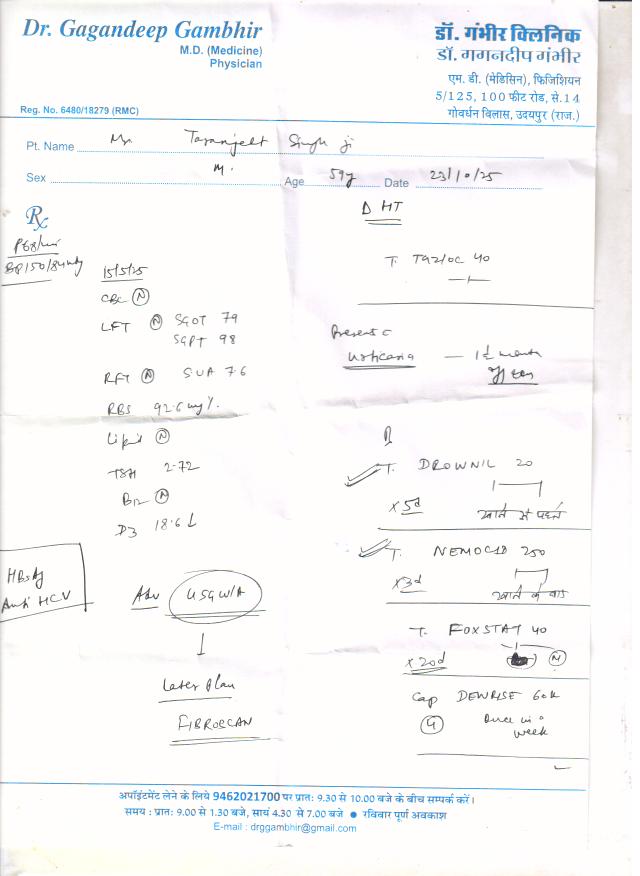 Dr. Gagandeep Gambhir
M.D. (Medicine)
Physician
Reg. No. 6480/18279 (RMC)
डॉ. गंभीर क्लिनिक
डॉ. गगनदीप गंभीर
एम. डी. (मेडिसिन), फिजिशियन
5/125, 100 फीट रोड, से.14
गोवर्धन विलास, उदयपुर (राज.)
Pt. Name Mr. Taranjeet Singh ji
Sex M. Age 59y Date 23/10/25
Rx
P68/min
BP150/84
15/5/25
CBC (N)
LFT (N) SGOT 79
SGPT 98
RFT (N) SUA 7.6
RBS 92.6 mg%
Lipid (N)
TSH 2.72
B12 (N)
D3 18.6 ↓
HBsAg
Anti HCV
Adv USG W/A
↓
Later Plan
FIBROSCAN
Δ HT
T. TAZLOC 40
Present c
Urticaria — 1½ month
R
T. DROWNIL 20
x 5d खाने से पहले
T. NEMOCID 250
x 3d खाने के बाद
T. FOXSTAT 40
x 20d (N)
Cap DEWRISE 60K
(4) Once in a
week
अपॉइंटमेंट लेने के लिये 9462021700 पर प्रातः 9.30 से 10.00 बजे के बीच सम्पर्क करें।
समय : प्रातः 9.00 से 1.30 बजे, सायं 4.30 से 7.00 बजे ● रविवार पूर्ण अवकाश
E-mail : drggambhir@gmail.com